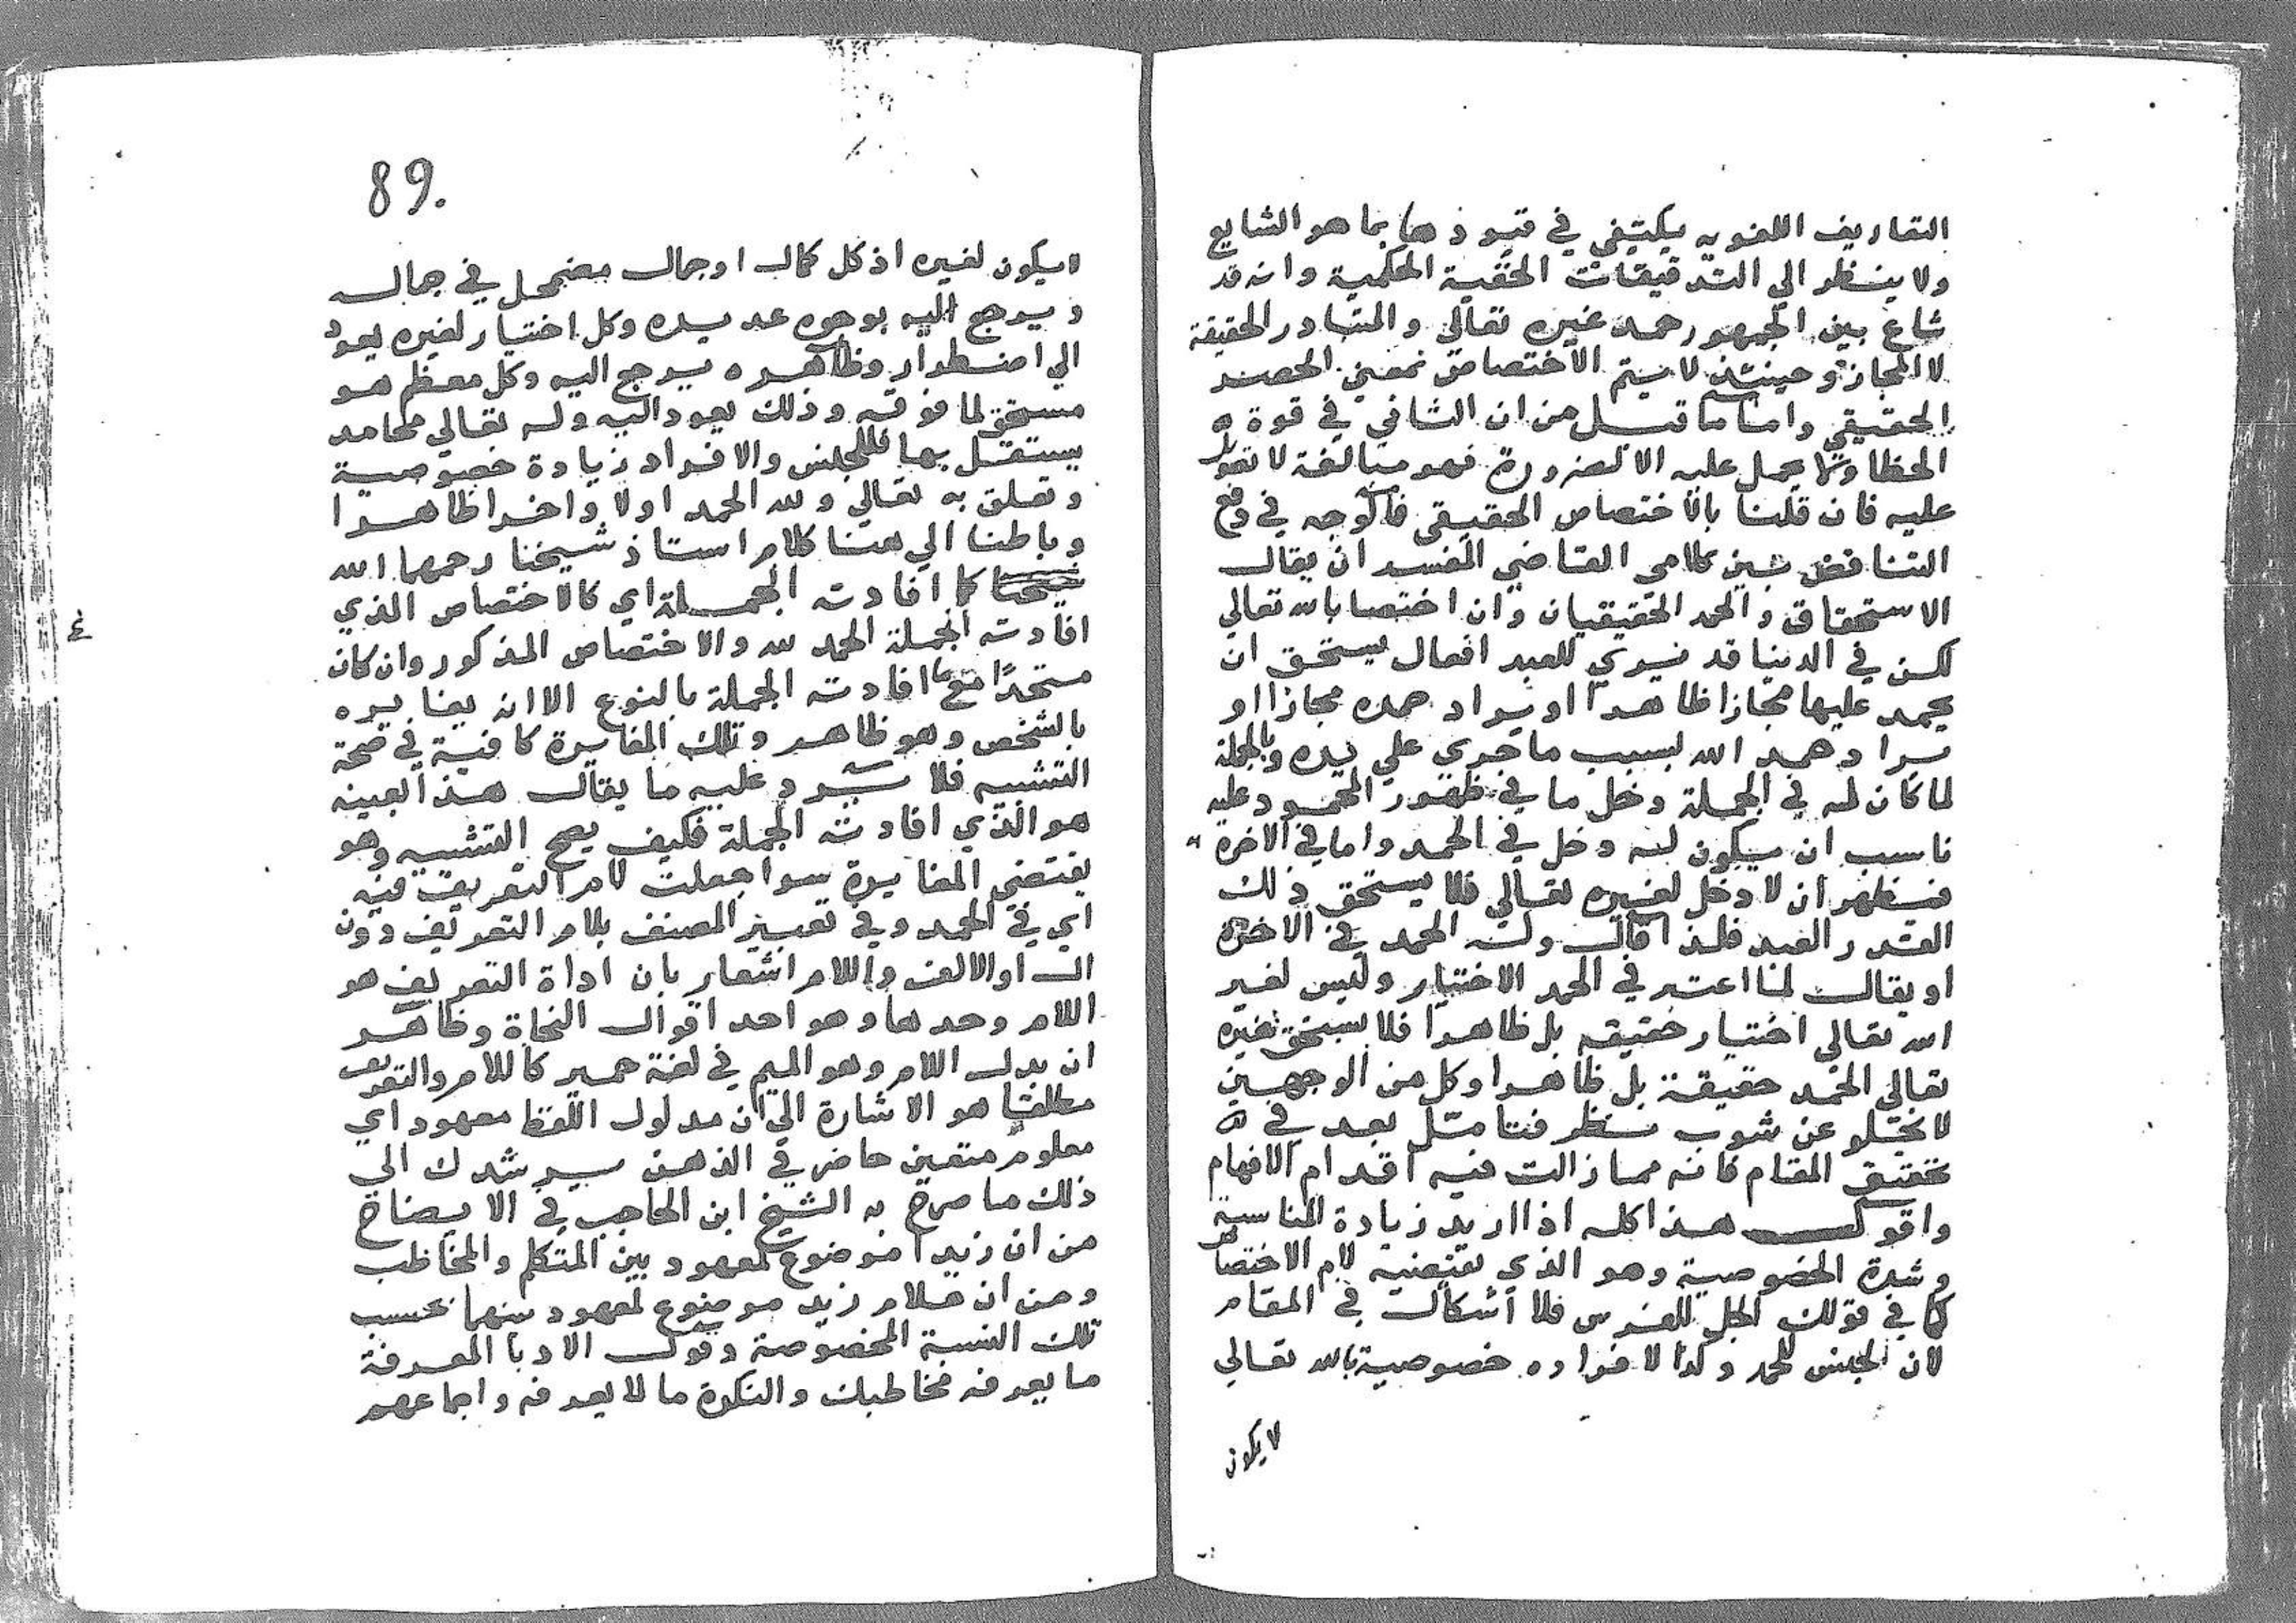 التعاريف اللغويه يكتفي في قيودها بما هو الشايع
ولا ينظر الي التدقيقات الحقية الحكمية وانه قد
شاع بين الجمهور حمد غيره تعالي والمتبادر الحقيقة
لا المجاز وحينئذ لا يتم الاختصاص بمعني الحصر
الحقيقي واما ما قيل من ان الثاني في قوة
الخطا ولا يحمل عليه الا لضرورة فهو مبالغة لا تعويل
عليه فان قلنا بالاختصاص الحقيقي فالوجه في دفع
التناقض بين كلامي القاضي المفسر ان يقال
الاستحقاق والحمد الحقيقيان وان اختصا بالله تعالي
لكن في الدنيا قد نسوي للعبد افعال يستحق ان
يحمد عليها مجازا ظاهرا او يراد حمده مجازا او
يراد حمد الله بسبب ما جري علي يده وبالجملة
لما كان له في الجملة دخل ما في ظهور المحمود عليه
ناسب ان يكون له دخل في الحمد واما في الاخرة
فيظهر ان لا دخل لغيره تعالي فلا يستحق ذلك
القدر العبد فلذا قال وله الحمد في الاخرة
او يقال لما اعتبر في الحمد الاختيار وليس لغير
الله تعالي اختيار حقيقه بل ظاهرا فلا يستحق غيره
تعالي الحمد حقيقة بل ظاهرا وكل من الوجهين
لا يخلو عن شوب نظر فتامل بعد في
تحقيق المقام فانه مما زالت فيه اقدام الافهام
واقول هذا كله اذا اريد زيادة المناسبة
وشدة الخصوصية وهو الذي تقتضيه لام الاختصاص
كما في قولك الجل للفرس فلا اشكال في المقام
لان لجنس الحمد وكذا لافراده خصوصية بالله تعالي
لا يكون
89.
لا يكون لغيره اذ كل كمال او جمال مضمحل في جمال
ويرجع اليه بوجوه عديده وكل اختيار لغيره يعود
الي اضطرار وظاهره يرجع اليه وكل معظم هو
مستحق لما فوقه وذلك يعود اليه وله تعالي محامد
يستقل بها فللجنس والافراد زيادة خصوصية
وتعلق به تعالي ولله الحمد اولا واخرا ظاهرا
وباطنا الي هنا كلام استاذ شيخنا رحمهما الله
كما افادته الجملة اي كالاختصاص الذي
افادته الجملة الحمد لله والاختصاص المذكور وان كان
متحدا مع ما افادته الجملة بالنوع الا انه يغايره
بالشخص وهو ظاهر وتلك المغايرة كافية في صحة
التشبيه فلا يرد عليه ما يقال هذا بعينه
هو الذي افادته الجملة فكيف يصح التشبيه وهو
يقتضي المغايرة سوا جعلت لام التعريف فيه
اي في الحمد وفي تعبير المصنف بلام التعريف دون
ال او الالف واللام اشعار بان اداة التعريف هو
اللام وحدها وهو احد اقوال النحاة وظاهر
ان بدل اللام وهو الميم في لغة حمير كاللام والتعريف
مطلقا هو الاشارة الي ان مدلول اللفظ معهود اي
معلوم متعين حاضر في الذهن يرشدك الي
ذلك ما صرح به الشيخ ابن الحاجب في الايضاح
من ان زيدا موضوع لمعهود بين المتكلم والمخاطب
ومن ان غلام زيد موضوع لمعهود بينهما بحسب
تلك النسبة المخصوصة وقول الادبا المعرفة
ما يعرفه مخاطبك والنكرة ما لا يعرفه واجماعهم